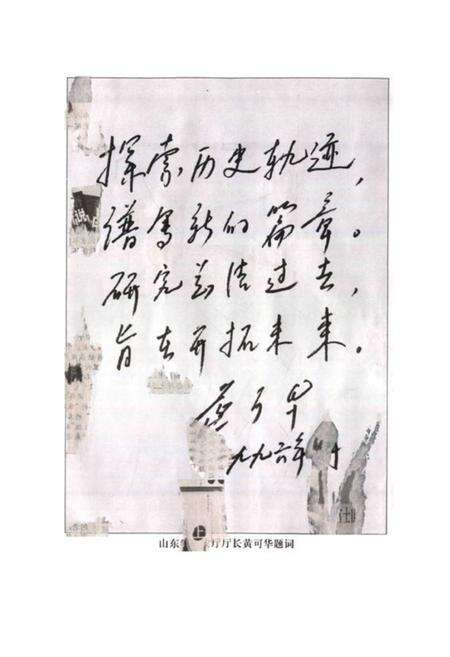 探索历史轨迹，
谱写新的篇章。
研究总结过去，
旨在开拓未来。
黄可华
九九六年
上
山东 厅厅长黄可华题词